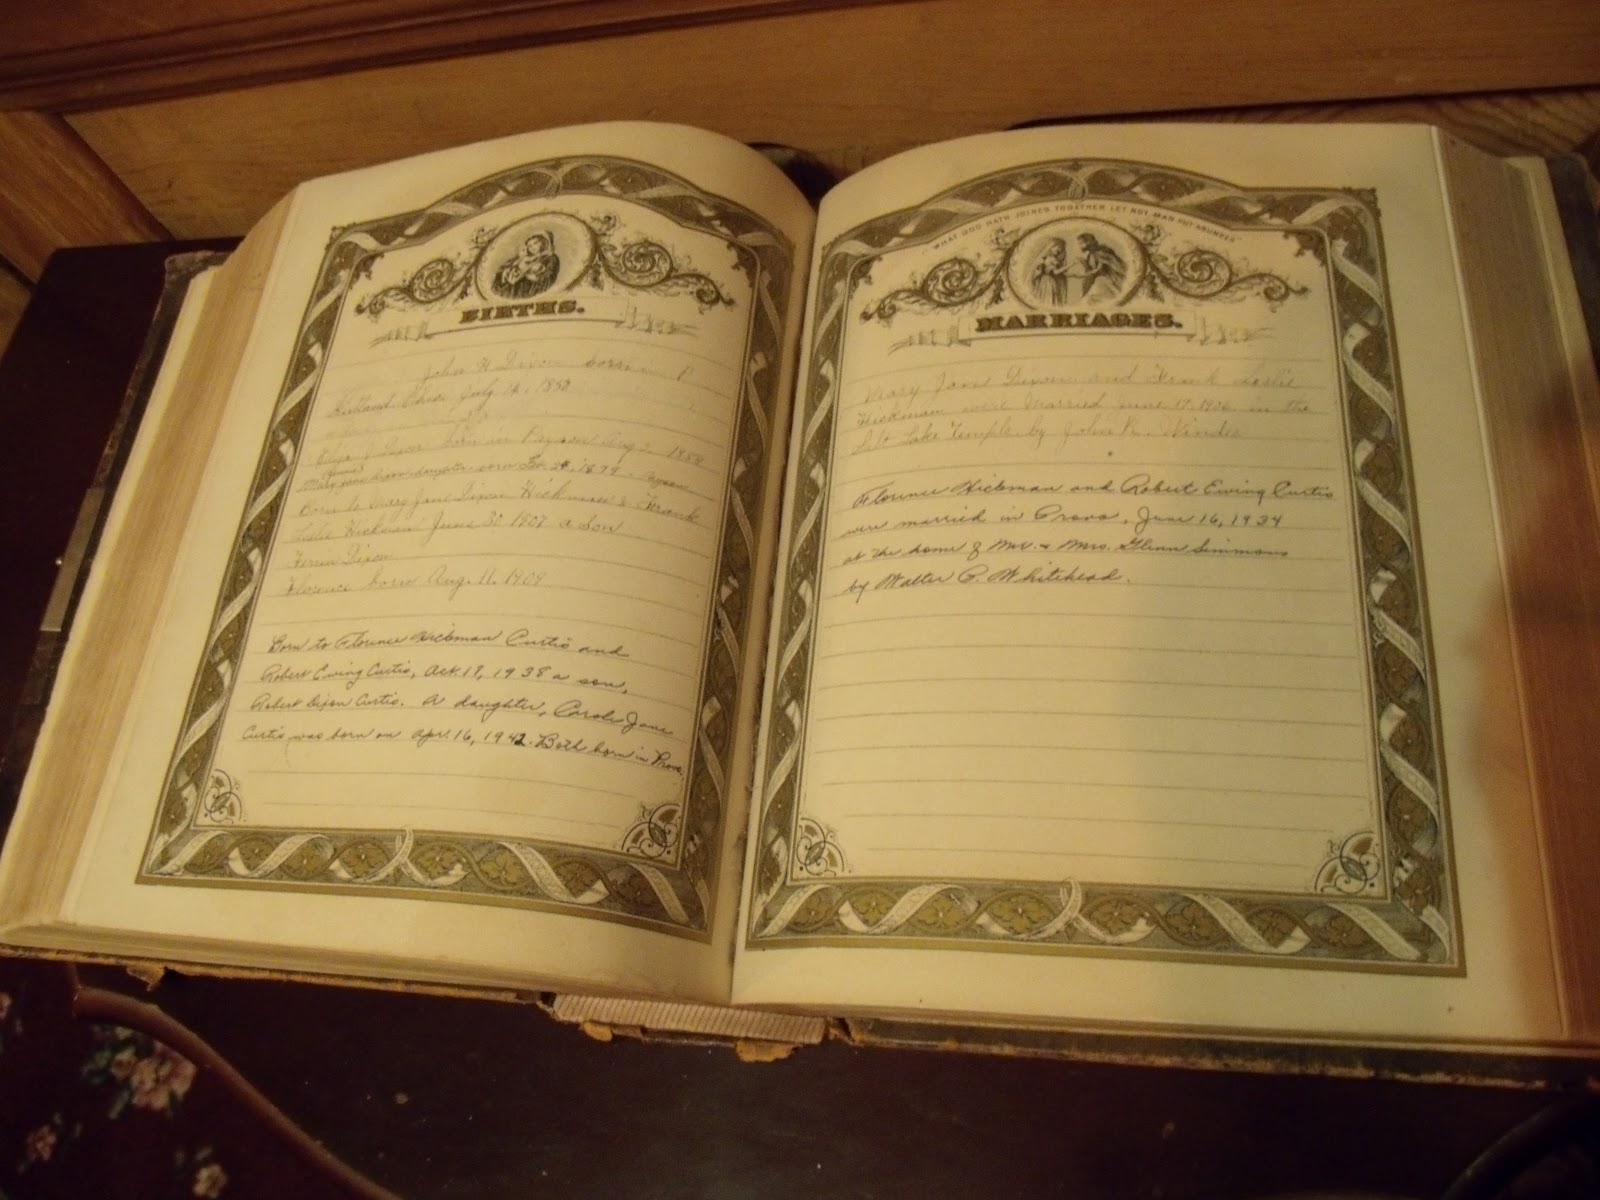 BIRTHS.
John H Dixon born in
Kirtland Ohio, July 14, 1858
born in Payson Aug 2, 1858
Mary Jane Dixon daughter born 24, 1879 Payson
Born to Mary Jane Dixon Hickman & Frank
Leslie Hickman June 30 1907 a Son
Dixon
Florence born Aug. 11, 1909
Born to Florence Hickman Curtis and
Robert Ewing Curtis, Oct. 17, 1938 a son,
Robert Dixon Curtis. A daughter, Carole Jane
Curtis was born on Apr. 16, 1942. Both born in Provo.
"WHAT GOD HATH JOINED TOGETHER LET NOT MAN PUT ASUNDER"
MARRIAGES.
Mary Jane Dixon and Frank Leslie
Hickman were Married June 17, 1906 in the
Salt Lake Temple by John R. Winder
Florence Hickman and Robert Ewing Curtis
were married in Provo, June 16, 1934
at the home of Mr. & Mrs. Glenn Simmons
by Walter P. Whitehead.